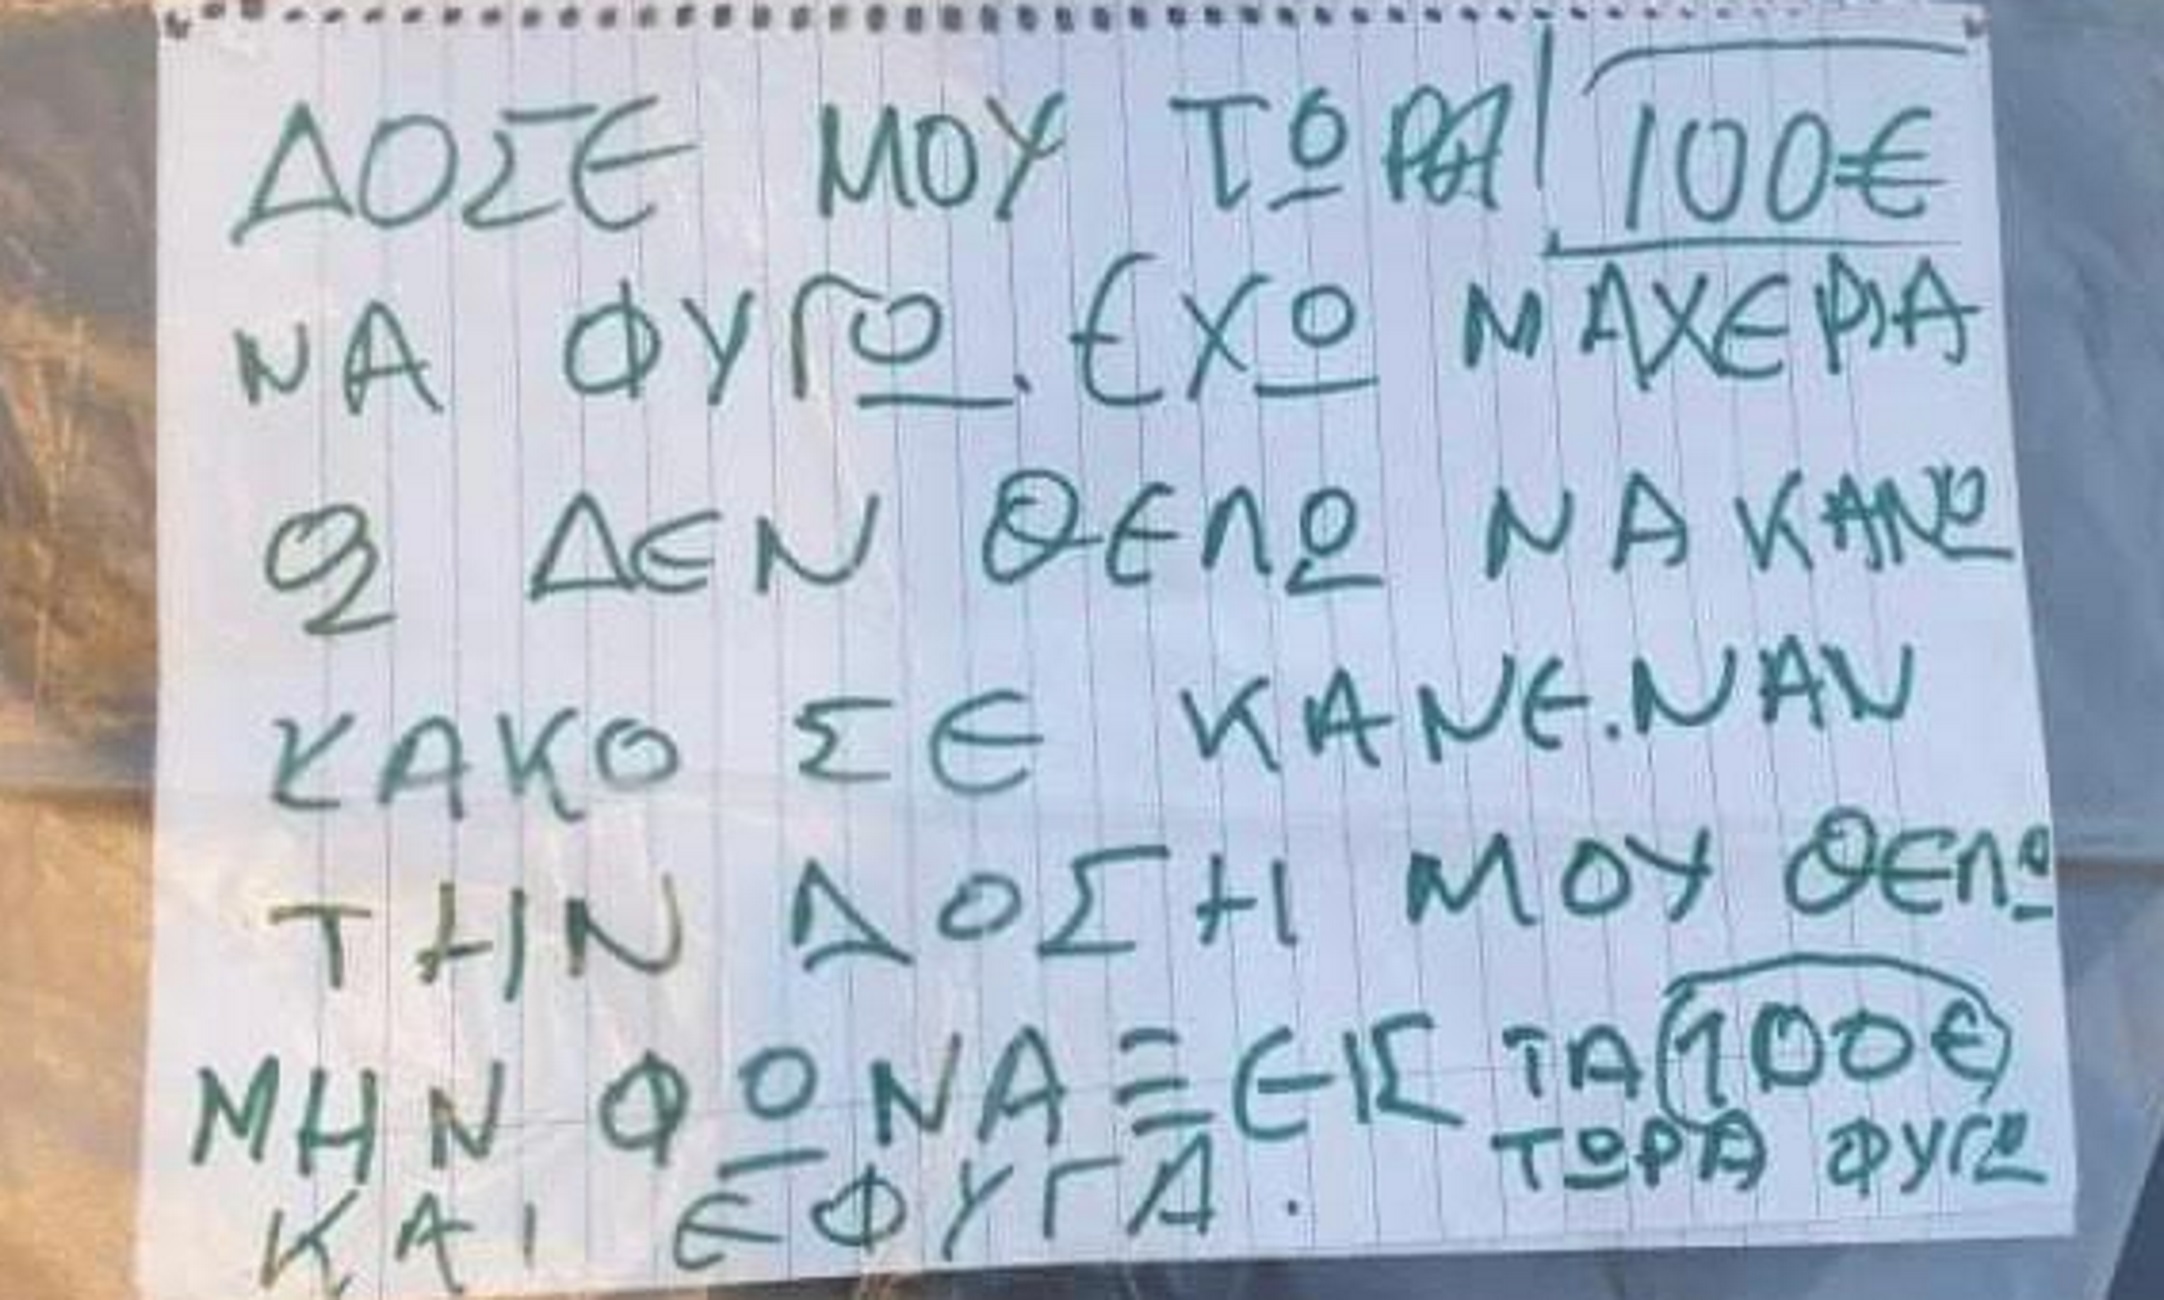 ΔΟΣΕ ΜΟΥ ΤΩΡΑ 100€
ΝΑ ΦΥΓΩ. ΕΧΩ ΜΑΧΕΡΙΑ
ΔΕΝ ΘΕΛΩ ΝΑ ΚΑΝΩ
ΚΑΚΟ ΣΕ ΚΑΝΕ.ΝΑΝ
ΤΗΝ ΔΟΣΗ ΜΟΥ ΘΕΛΩ
ΜΗΝ ΦΩΝΑΞΕΙΣ ΤΑ 100€
ΤΩΡΑ ΦΥΓΩ
ΚΑΙ ΕΦΥΓΑ.